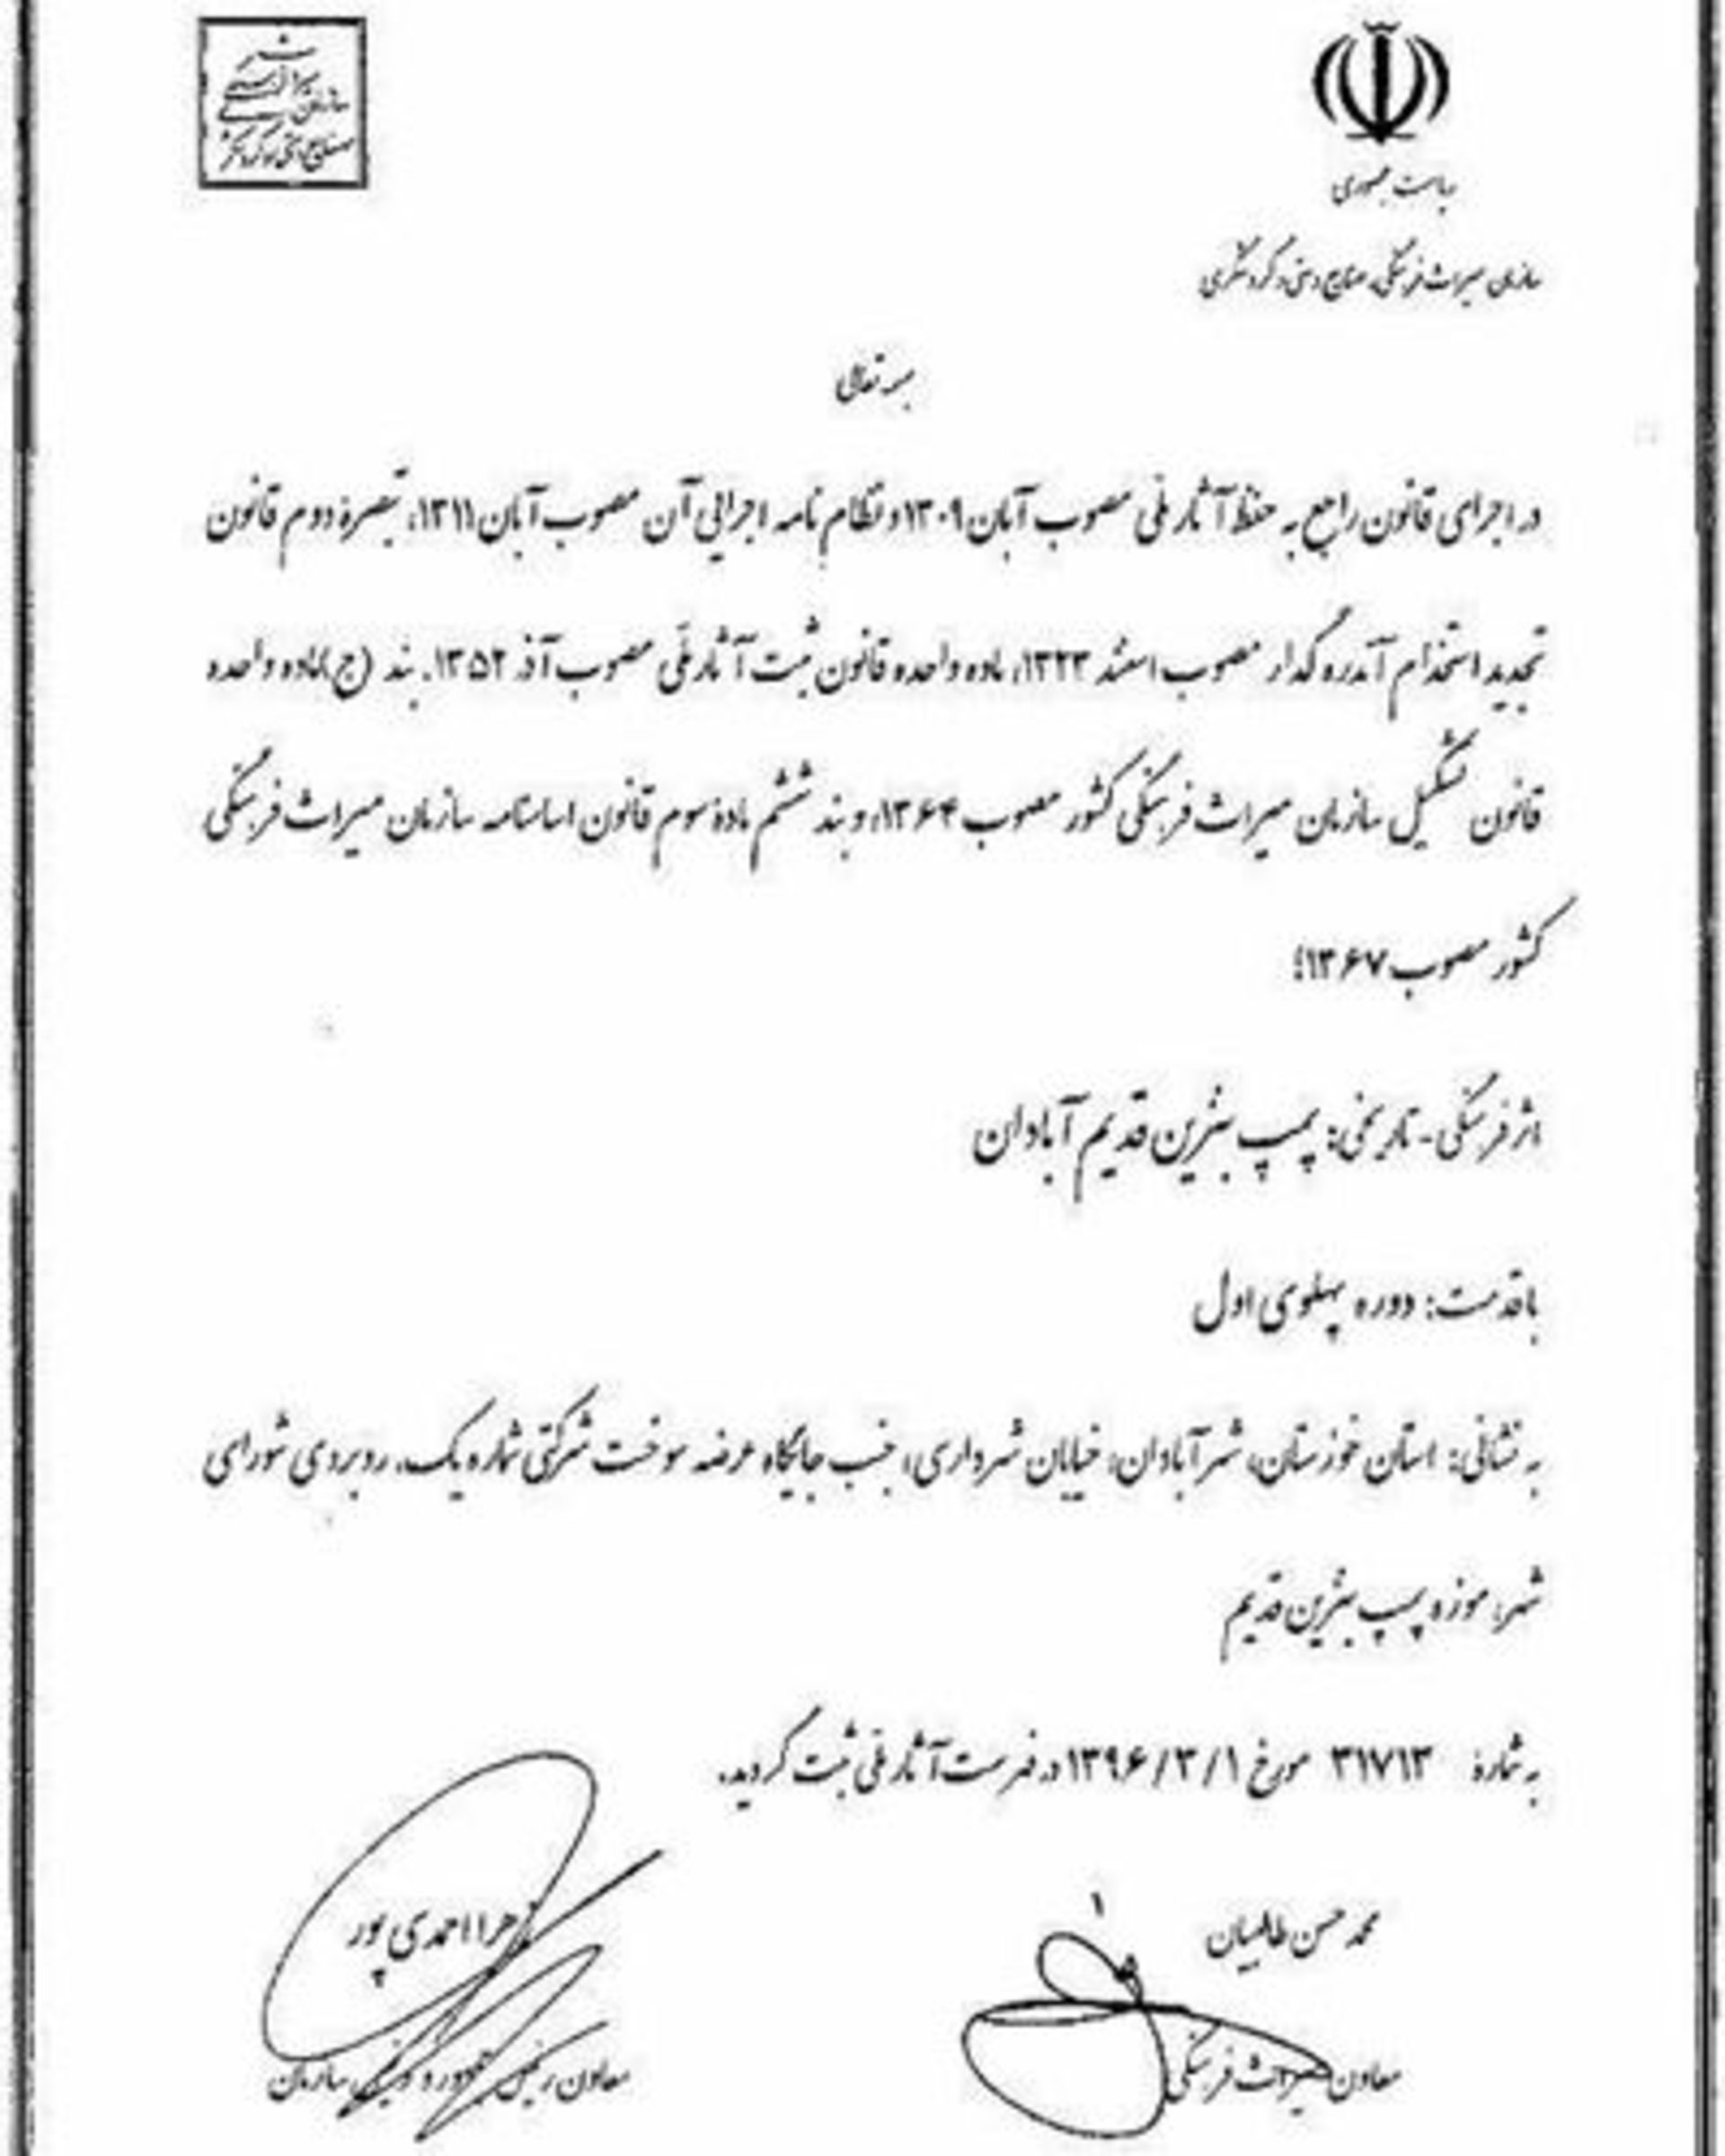 ریاست جمهوری
سازمان میراث فرهنگی، صنایع دستی و گردشگری
بسمه تعالی
در اجرای قانون راجع به حفظ آثار ملی مصوب آبان ۱۳۰۹ و نظام نامه اجرایی آن مصوب آبان ۱۳۱۱، تبصرهٔ دوم قانون
تجدید استخدام آندره گدار مصوب اسفند ۱۳۲۳، ماده واحده قانون ثبت آثار ملّی مصوب آذر ۱۳۵۲. بند (ج) ماده واحده
قانون تشکیل سازمان میراث فرهنگی کشور مصوب ۱۳۶۴، و بند ششم مادهٔ سوم قانون اساسنامه سازمان میراث فرهنگی
کشور مصوب ۱۳۶۷؛
اثر فرهنگی - تاریخی: پمپ بنزین قدیم آبادان
با قدمت: دوره پهلوی اول
به نشانی: استان خوزستان، شهر آبادان، خیابان شهرداری، جنب جایگاه عرضه سوخت شرکتی شماره یک، روبروی شورای
شهر، موزه پمپ بنزین قدیم
به شمارهٔ ۳۱۷۱۳ مورخ ۱۳۹۶/۳/۱ در فهرست آثار ملی ثبت گردید.
محمد حسن طالبیان
زهرا احمدی پور
معاون میراث فرهنگی
معاون رئیس جمهور و رئیس سازمان